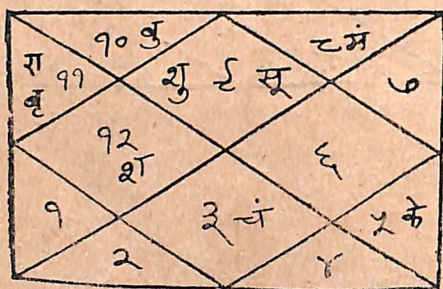 १० बु
८ मं
रा
बृ ११
शु ९ सू
७
१२
श
६
१
३ चं
५ के
२
४